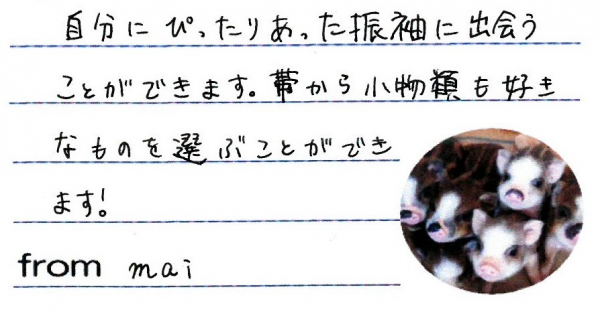 自分にぴったりあった振袖に出会う
ことができます。帯から小物類も好き
なものを選ぶことができ
ます!
from mai